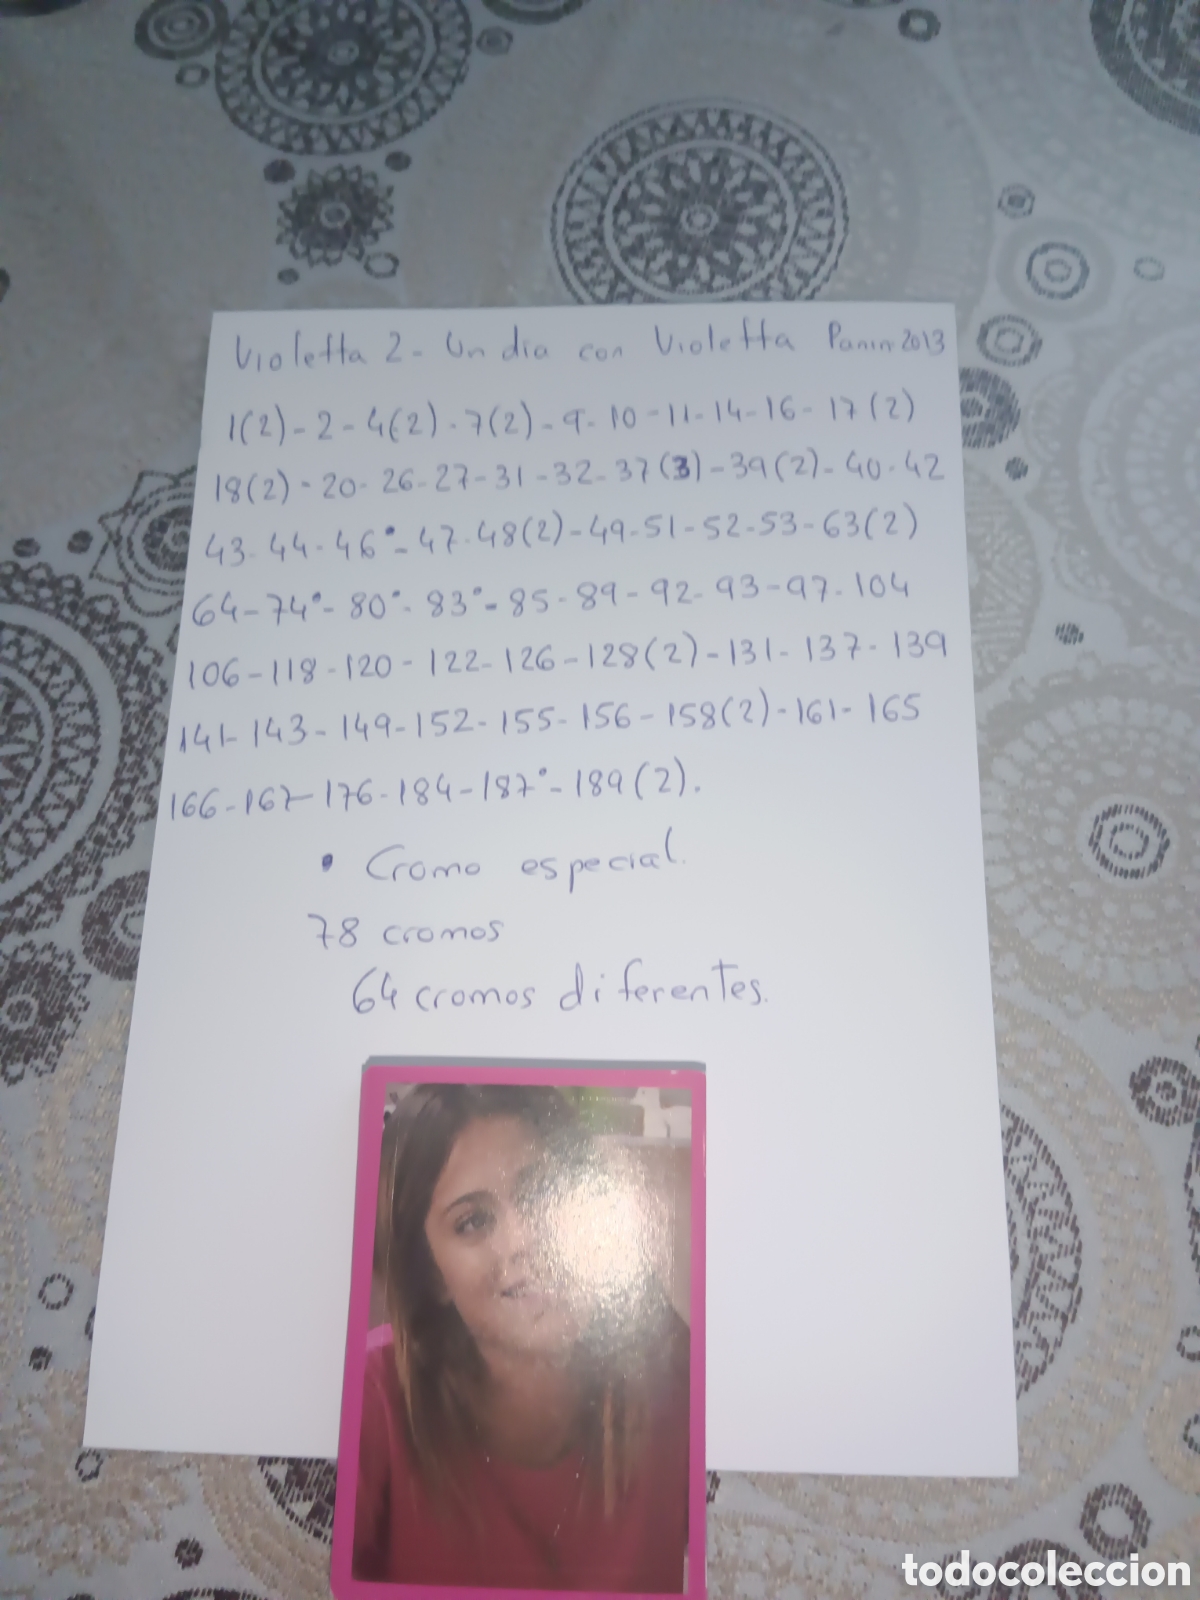 Violetta 2 - Un dia con Violetta Panini 2013
1(2) - 2 - 4(2) - 7(2) - 9 - 10 - 11 - 14 - 16 - 17(2)
18(2) - 20 - 26 - 27 - 31 - 32 - 37(3) - 39(2) - 40 - 42
43 - 44 - 46• - 47 - 48(2) - 49 - 51 - 52 - 53 - 63(2)
64 - 74• - 80• - 83• - 85 - 89 - 92 - 93 - 97 - 104
106 - 118 - 120 - 122 - 126 - 128(2) - 131 - 137 - 139
141 - 143 - 149 - 152 - 155 - 156 - 158(2) - 161 - 165
166 - 167 - 176 - 184 - 187• - 189(2).
• Cromo especial.
78 cromos
64 cromos diferentes.
todocoleccion